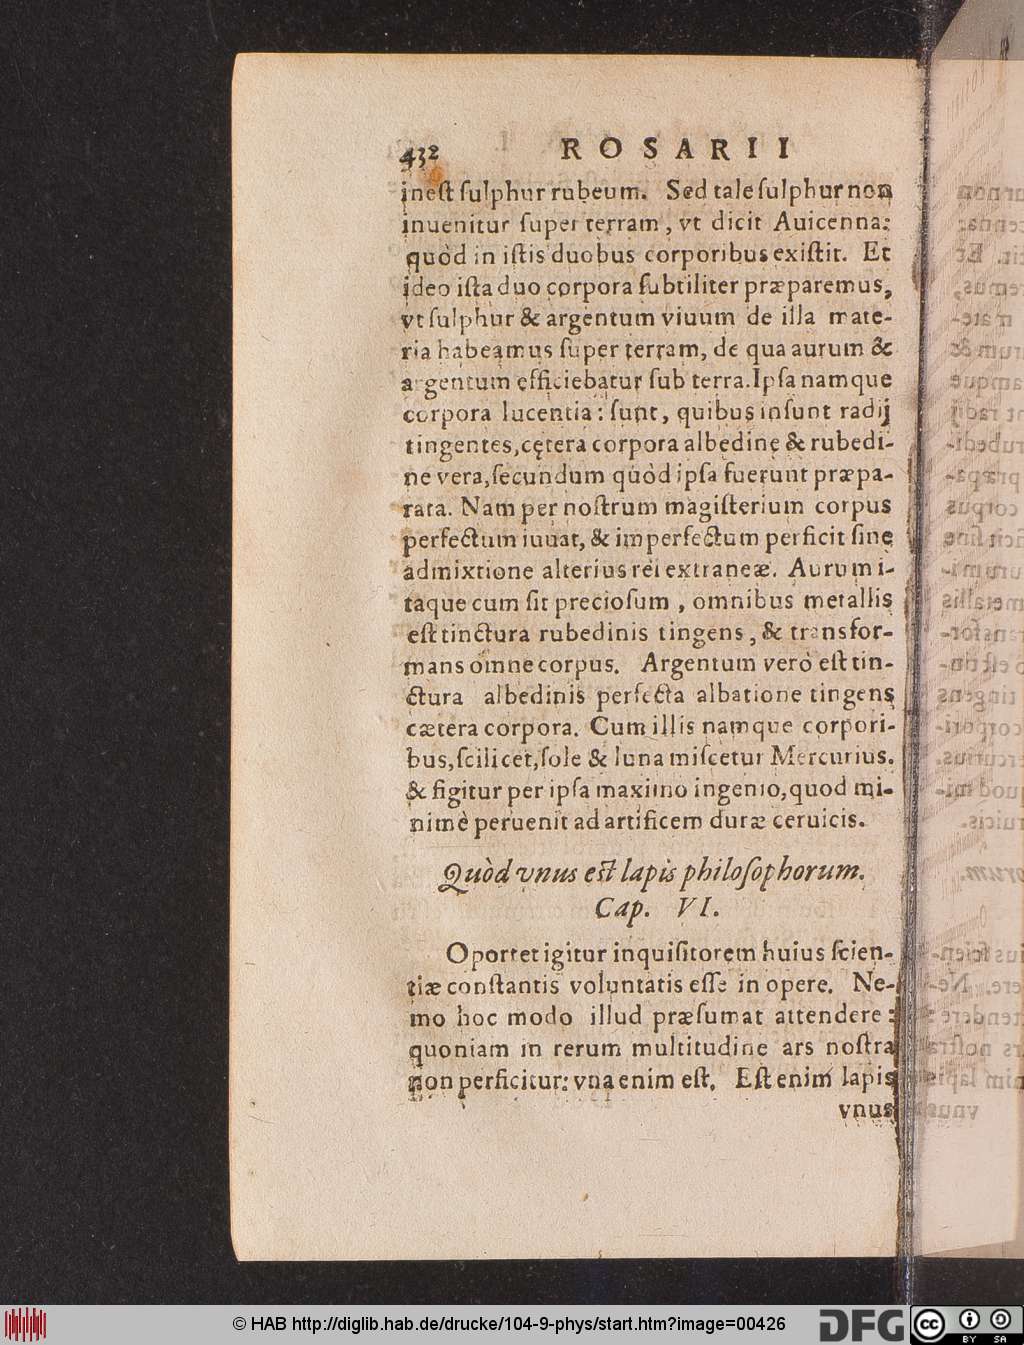 432 ROSARII
ineſt ſulphur rubeum. Sed tale ſulphur non
inuenitur ſuper terram, vt dicit Auicenna:
quòd in iſtis duobus corporibus exiſtit. Et
ideo iſta duo corpora ſubtiliter præparemus,
vt ſulphur & argentum viuum de illa mate-
ria habeamus ſuper terram, de qua aurum &
argentum efficiebatur ſub terra. Ipſa namque
corpora lucentia: ſunt, quibus inſunt radij
tingentes, cętera corpora albedine & rubedi-
ne vera, ſecundum quòd ipſa fuerunt præpa-
rata. Nam per noſtrum magiſterium corpus
perfectum iuuat, & imperfectum perficit ſine
admixtione alterius rei extraneæ. Aurum i-
taque cum ſit precioſum, omnibus metallis
eſt tinctura rubedinis tingens, & transfor-
mans omne corpus. Argentum verò eſt tin-
ctura albedinis perfecta albatione tingens
cætera corpora. Cum illis namque corpori-
bus, ſcilicet, ſole & luna miſcetur Mercurius.
& figitur per ipſa maximo ingenio, quod mi-
nimè peruenit ad artificem duræ ceruicis.
Quòd vnus eſt lapis philoſophorum.
Cap. VI.
Oportet igitur inquiſitorem huius ſcien-
tiæ conſtantis voluntatis eſſe in opere. Ne-
mo hoc modo illud præſumat attendere:
quoniam in rerum multitudine ars noſtra
non perficitur: vna enim eſt. Eſt enim lapis
vnus
© HAB http://diglib.hab.de/drucke/104-9-phys/start.htm?image=00426
DFG
cc BY SA